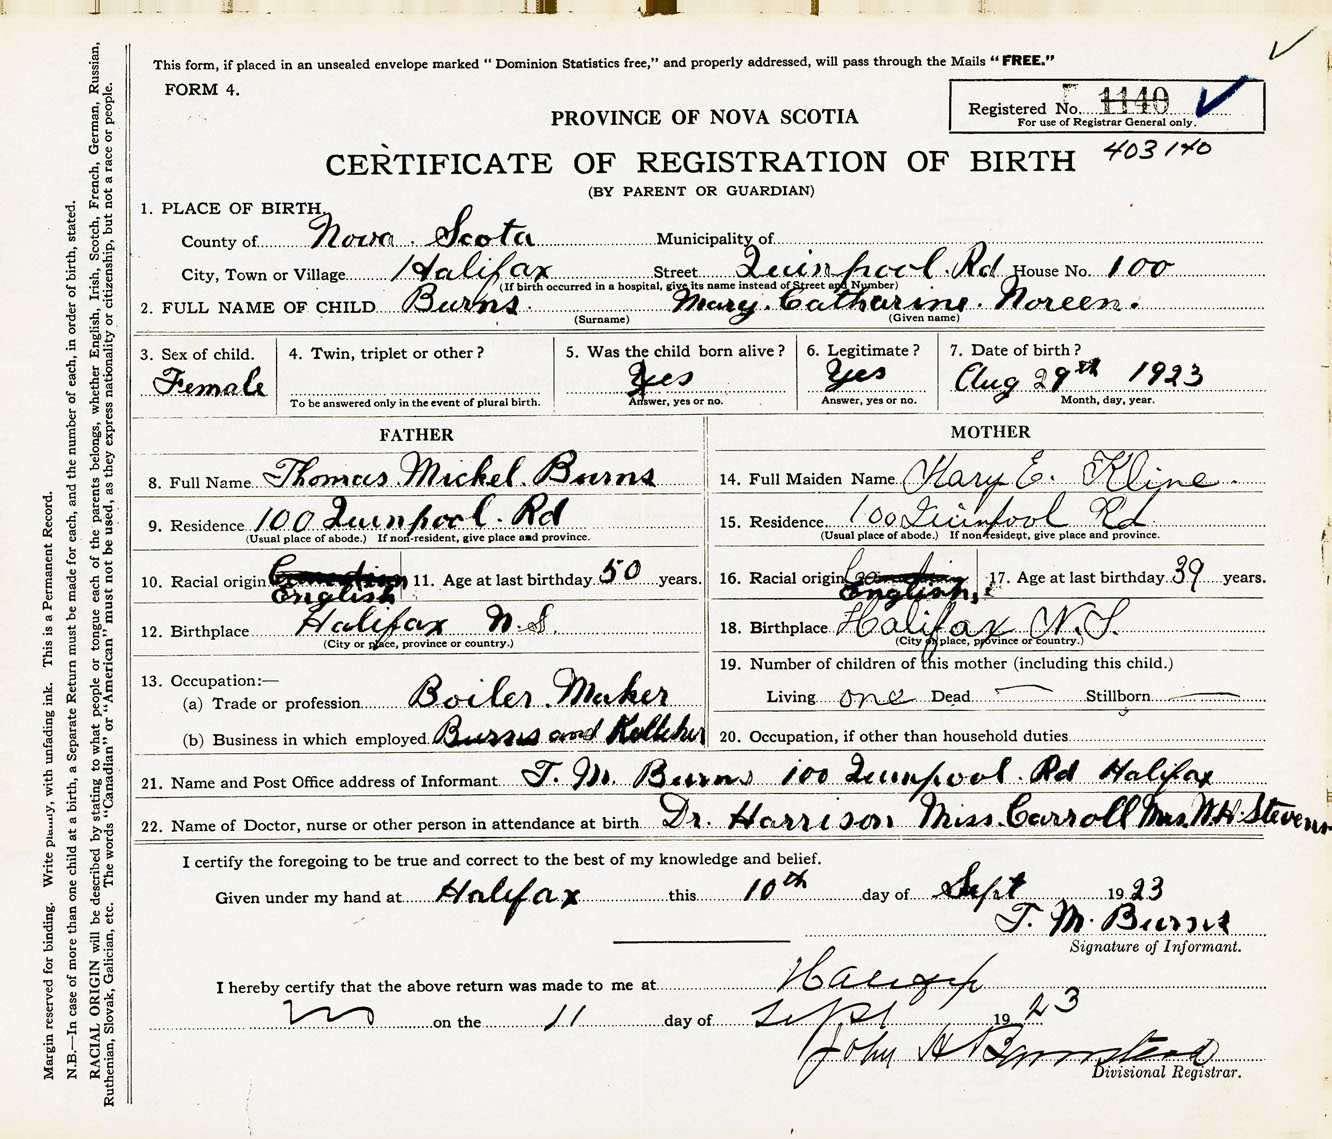 This form, if placed in an unsealed envelope marked "Dominion Statistics free," and properly addressed, will pass through the Mails "FREE."
FORM 4.
Registered No. 1140
For use of Registrar General only.
PROVINCE OF NOVA SCOTIA
403140
CERTIFICATE OF REGISTRATION OF BIRTH
(BY PARENT OR GUARDIAN)
1. PLACE OF BIRTH,
County of Nova Scota Municipality of
City, Town or Village Halifax Street Quinpool Rd House No. 100
(If birth occurred in a hospital, give its name instead of Street and Number)
2. FULL NAME OF CHILD Burns. Mary Catharine Noreen.
(Surname) (Given name)
3. Sex of child. 4. Twin, triplet or other? 5. Was the child born alive? 6. Legitimate? 7. Date of birth?
Female Yes Yes Aug 29th 1923
To be answered only in the event of plural birth. Answer, yes or no. Answer, yes or no. Month, day, year.
FATHER MOTHER
8. Full Name Thomas Mickel Burns
9. Residence 100 Quinpool Rd
(Usual place of abode.) If non-resident, give place and province.
10. Racial origin Canadian 11. Age at last birthday 50 years.
English
12. Birthplace Halifax N.S.
(City or place, province or country.)
13. Occupation:—
(a) Trade or profession Boiler Maker
(b) Business in which employed Burns and Kelleher
14. Full Maiden Name Mary E. Kline
15. Residence 100 Quinpool Rd.
(Usual place of abode.) If non-resident, give place and province.
16. Racial origin Canadian 17. Age at last birthday 39 years.
English
18. Birthplace Halifax N.S.
(City or place, province or country.)
19. Number of children of this mother (including this child.)
Living one Dead — Stillborn —
20. Occupation, if other than household duties
21. Name and Post Office address of Informant T. M. Burns 100 Quinpool Rd Halifax
22. Name of Doctor, nurse or other person in attendance at birth Dr. Harrison Miss. Carroll Mrs. W.H. Stevens
I certify the foregoing to be true and correct to the best of my knowledge and belief.
Given under my hand at Halifax this 10th day of Sept 1923
T. M. Burns
Signature of Informant.
I hereby certify that the above return was made to me at Halifax
on the 11 day of Sept 1923
John H
Divisional Registrar.
Margin reserved for binding. Write plainly, with unfading ink. This is a Permanent Record.
N.B.—In case of more than one child at a birth, a Separate Return must be made for each, and the number of each, in order of birth, stated.
RACIAL ORIGIN will be described by stating to what people or tongue each of the parents belongs, whether English, Irish, Scotch, French, German, Russian,
Ruthenian, Slovak, Galician, etc. The words "Canadian" or "American" must not be used, as they express nationality or citizenship, but not a race or people.